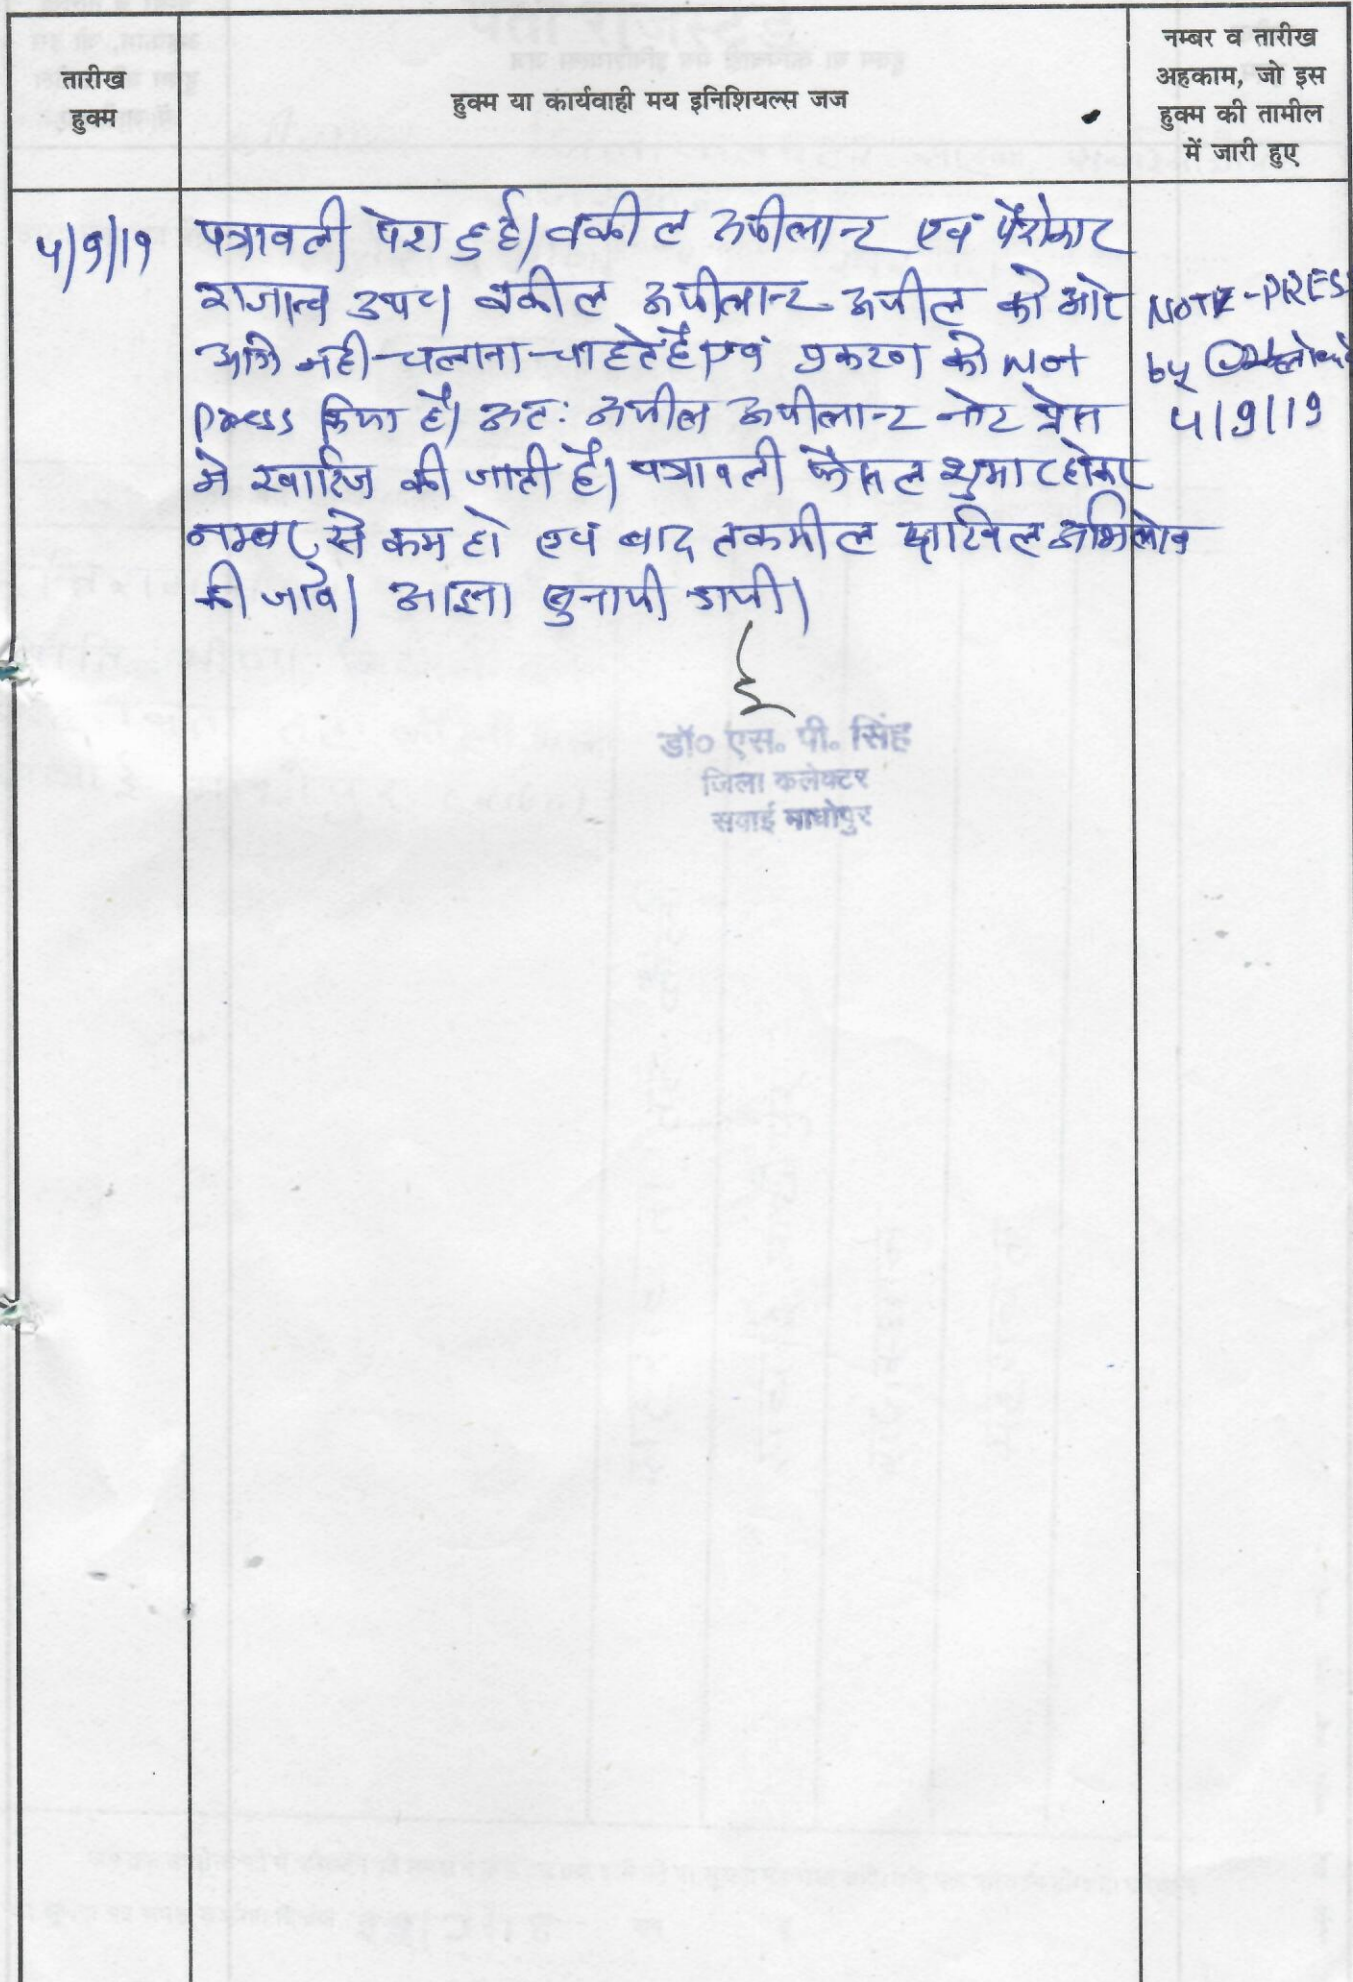 तारीख
हुक्म
हुक्म या कार्यवाही मय इनिशियल्स जज
नम्बर व तारीख
अहकाम, जो इस
हुक्म की तामील
में जारी हुए
4/9/19
पत्रावली पेश हुई। वकील अपीलान्ट एवं पैरोकार
राजस्व उप०। वकील अपीलान्ट अपील को ओर
आगे नही चलाना चाहते है। एवं प्रकरण को Not
press किया है। अतः अपील अपीलान्ट नोट प्रेस
मे खारिज की जाती है। पत्रावली फैसल शुमार होकर
नम्बर से कम हो एवं बाद तकमील दाखिल अभिलेख
की जावे। आज्ञा सुनायी गयी।
NOT-PRESS
by
4/9/19
डॉ० एस. पी. सिंह
जिला कलेक्टर
सवाई माधोपुर